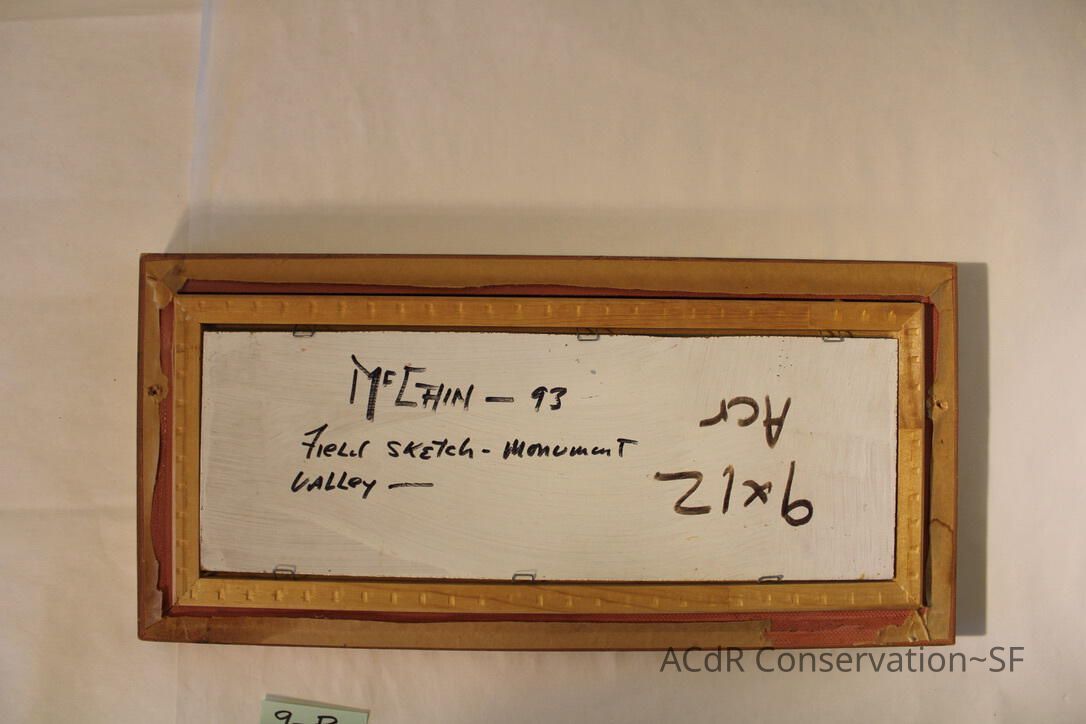 McCHIN – 93
Field Sketch - Monument
Valley —
Acr
9x12
ACdR Conservation~SF